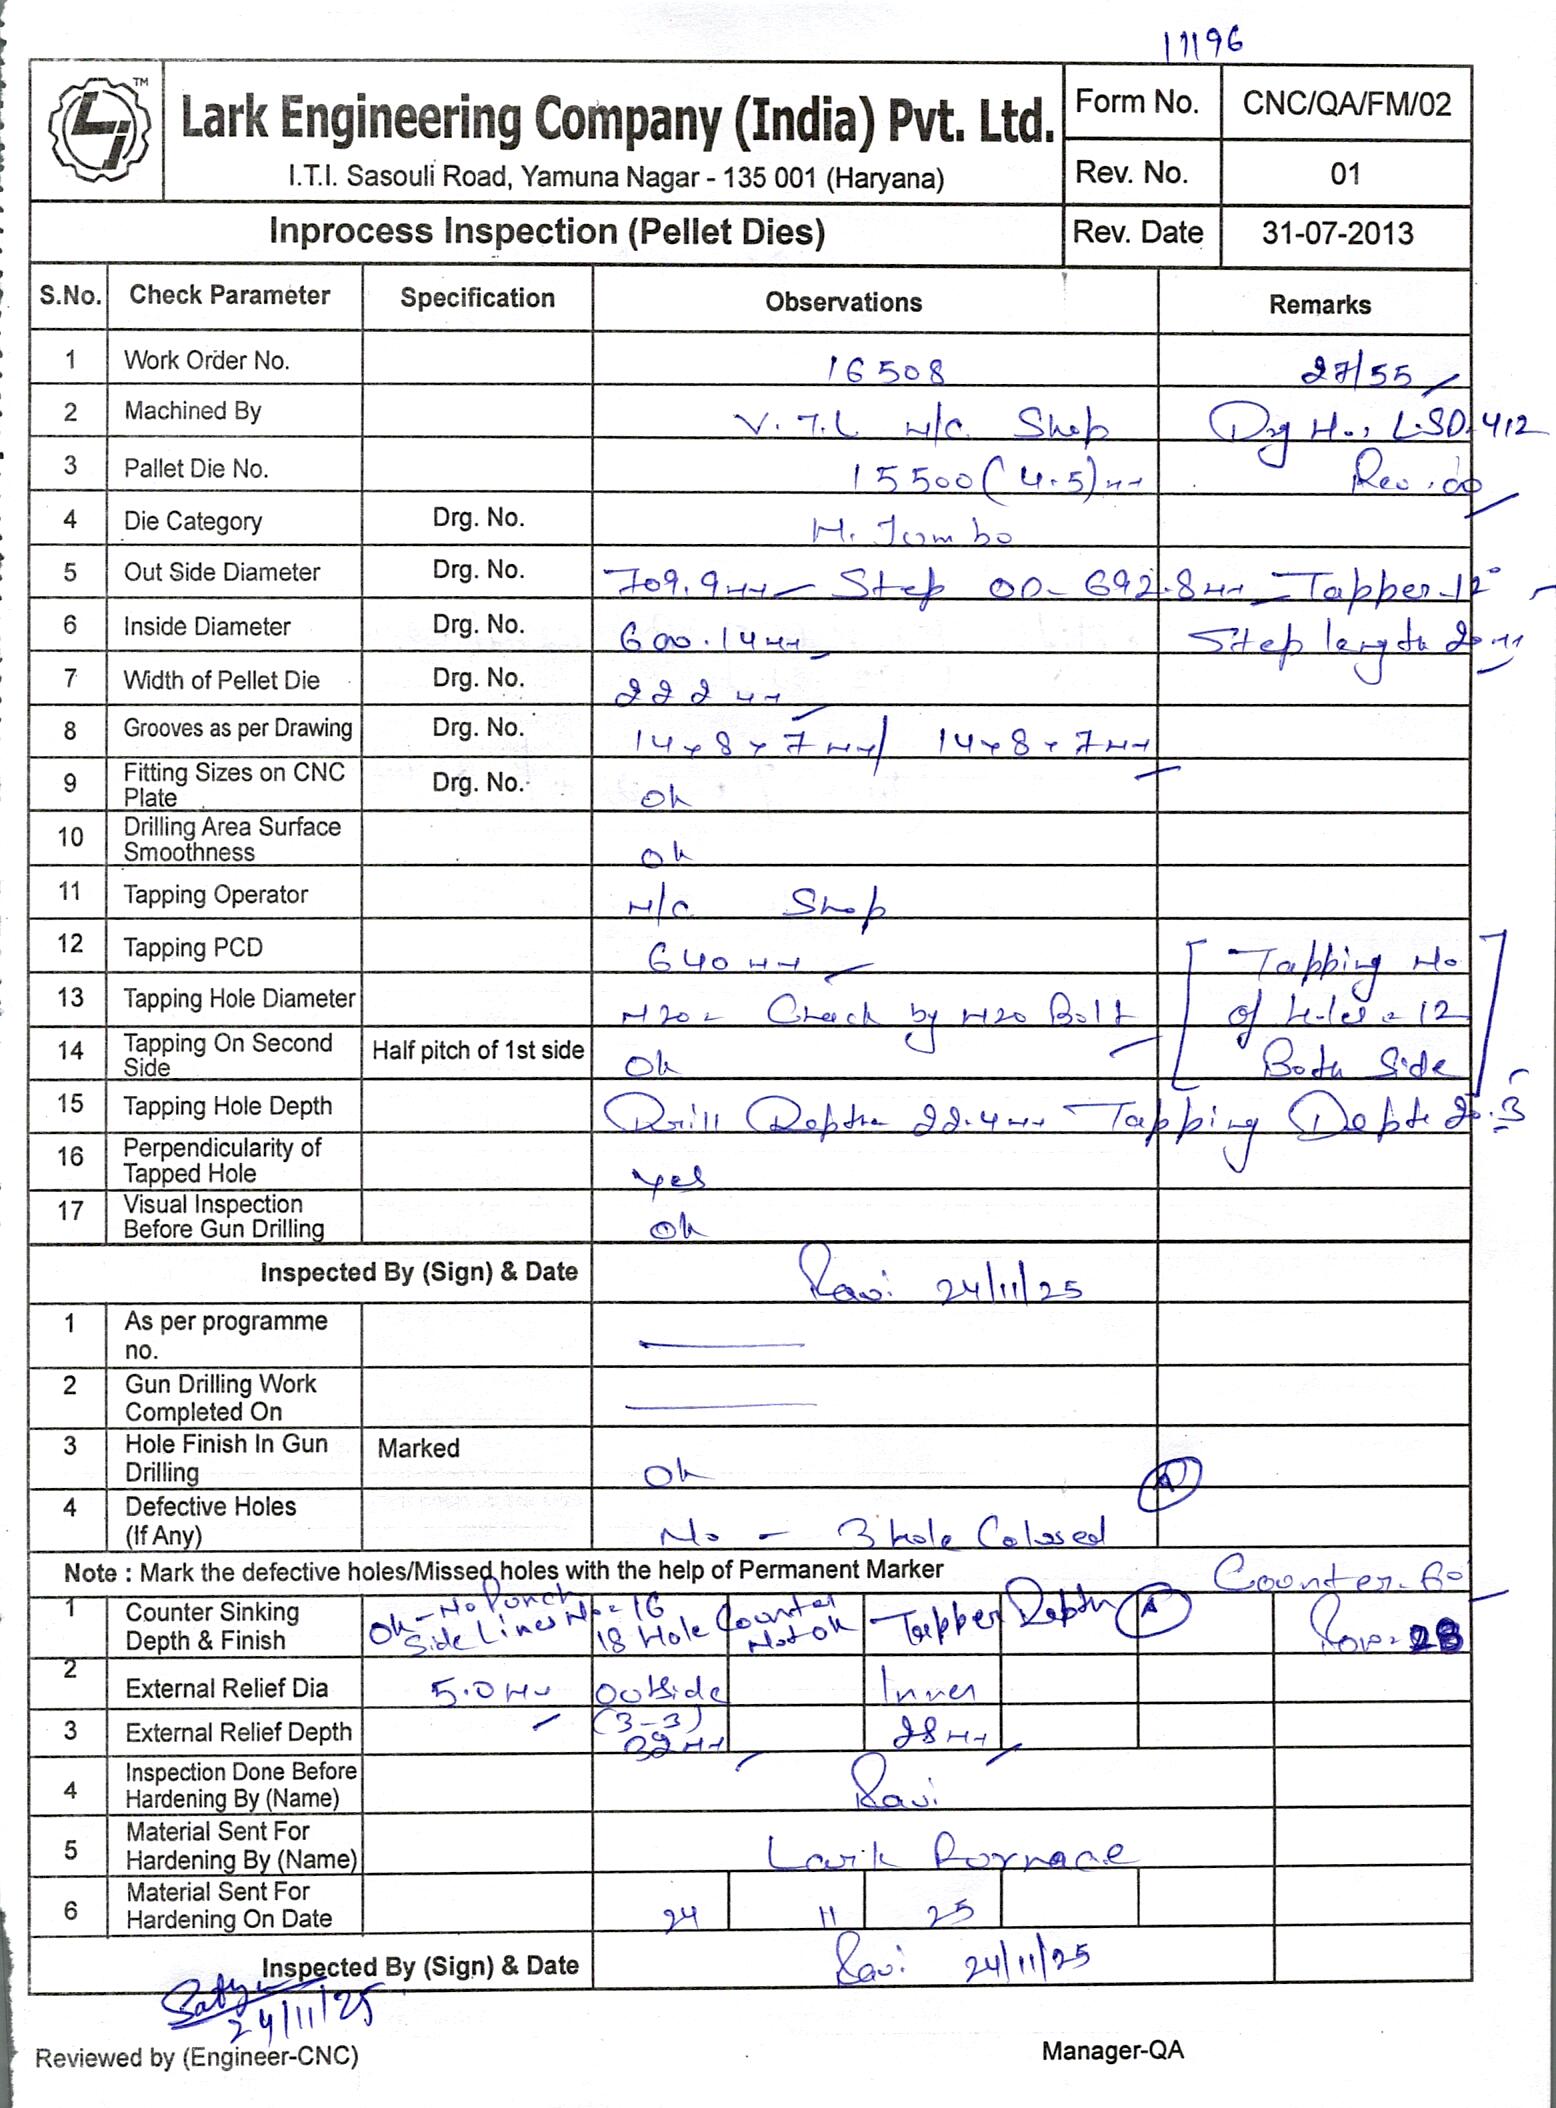 11196
TM
Lark Engineering Company (India) Pvt. Ltd.
I.T.I. Sasouli Road, Yamuna Nagar - 135 001 (Haryana)
Form No. CNC/QA/FM/02
Rev. No. 01
Inprocess Inspection (Pellet Dies) Rev. Date 31-07-2013
S.No. Check Parameter Specification Observations Remarks
1 Work Order No. 16508 27/55
2 Machined By V.T.L M/C Shop Drg No, LSD-412
3 Pallet Die No. 15500(4.5)mm Rev.00
4 Die Category Drg. No. H. Jumbo
5 Out Side Diameter Drg. No. 709.9mm Step OD- 692.8mm Tapper-12°
6 Inside Diameter Drg. No. 600.14mm Step length 20mm
7 Width of Pellet Die Drg. No. 222mm
8 Grooves as per Drawing Drg. No. 14x8x7mm/ 14x8x7mm
9 Fitting Sizes on CNC Plate Drg. No. Ok
10 Drilling Area Surface Smoothness Ok
11 Tapping Operator M/C Shop
12 Tapping PCD 640mm [Tapping No
13 Tapping Hole Diameter M20- Check by M20 Bolt of holes=12
14 Tapping On Second Side Half pitch of 1st side Ok Both Side]
15 Tapping Hole Depth Drill Depth 22.4mm Tapping Depth 20.3
16 Perpendicularity of Tapped Hole Yes
17 Visual Inspection Before Gun Drilling Ok
Inspected By (Sign) & Date Ravi 24/11/25
1 As per programme no.
2 Gun Drilling Work Completed On
3 Hole Finish In Gun Drilling Marked Ok A
4 Defective Holes (If Any) No - 3 hole Colosed
Note : Mark the defective holes/Missed holes with the help of Permanent Marker Counter-60°
1 Counter Sinking Depth & Finish Ok - No Punch Side Lines No=16 18 Hole Counter Not Ok Tapper Depth A Row-28
2 External Relief Dia 5.0mm Outside Inner
3 External Relief Depth (3-3) 32mm 28mm
4 Inspection Done Before Hardening By (Name) Ravi
5 Material Sent For Hardening By (Name) Lark Furnace
6 Material Sent For Hardening On Date 24 11 25
Inspected By (Sign) & Date Ravi 24/11/25
24/11/25
Reviewed by (Engineer-CNC) Manager-QA